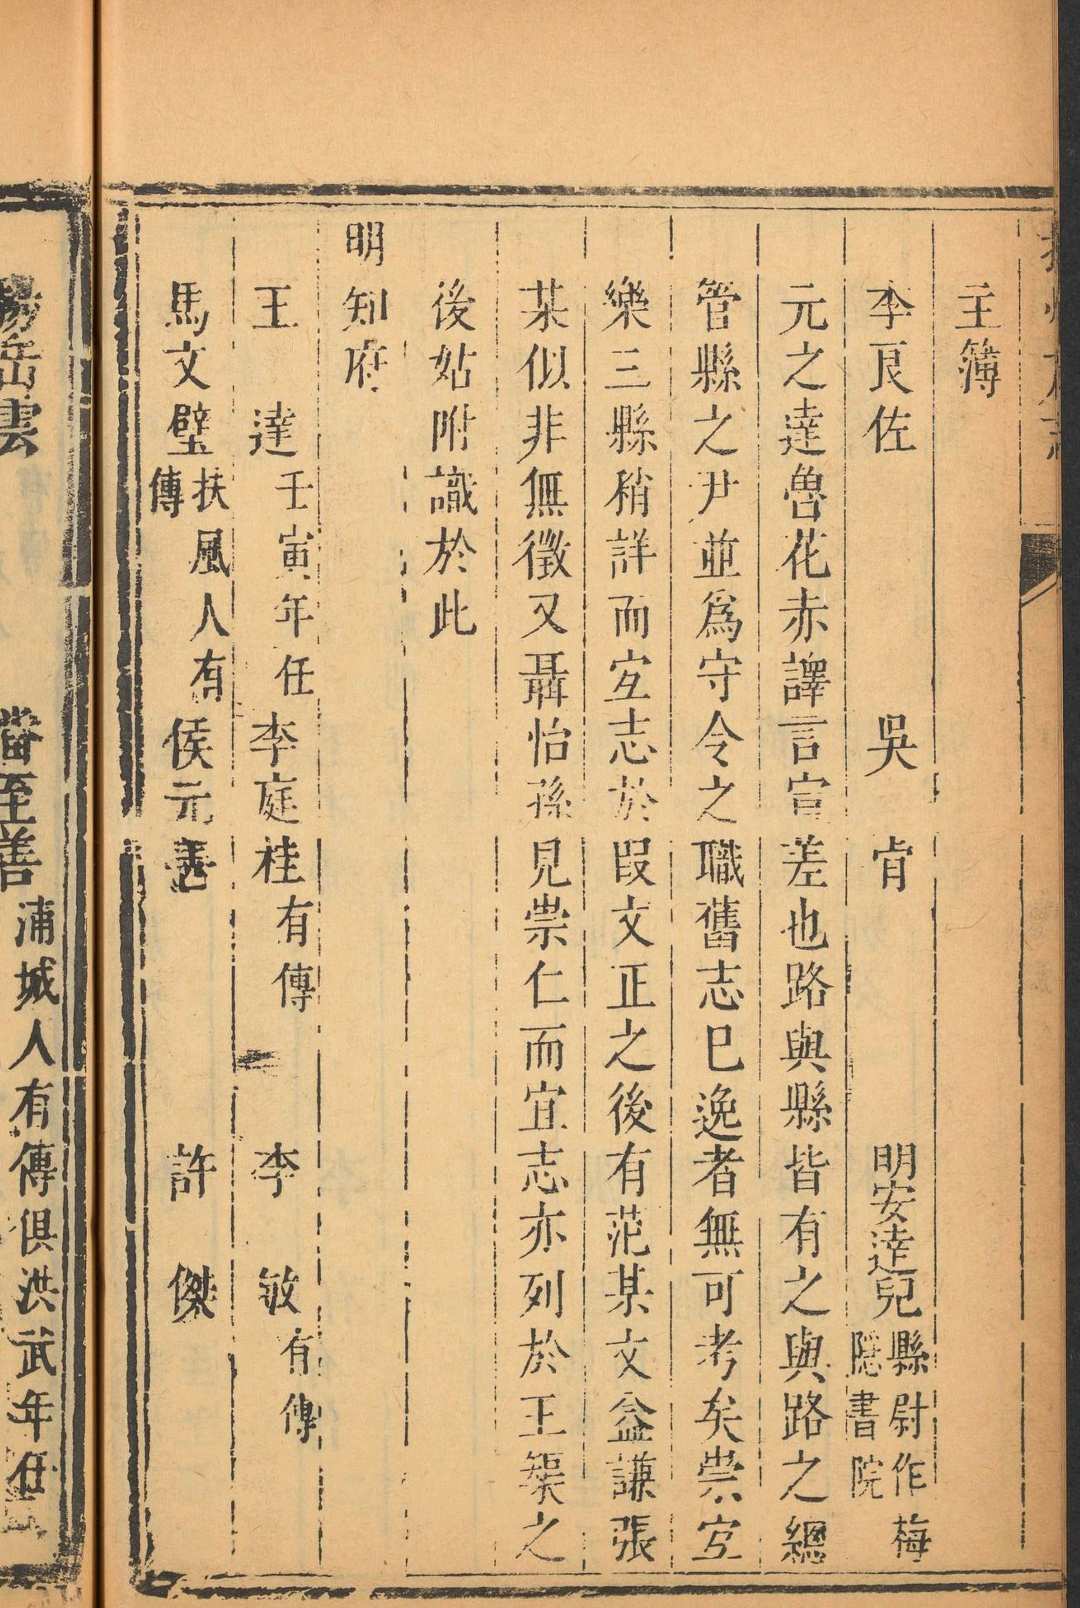 主簿
李良佐　吳肯　明安達兒縣尉作梅隱書院
元之達魯花赤譯言宣差也路與縣皆有之與路之總
管縣之尹並爲守令之職舊志已逸者無可考矣崇宜
樂三縣稍詳而宜志於叚文正之後有范某文益謙張
某似非無徵又聶怡孫見崇仁而宜志亦列於王榘之
後姑附識於此
明知府
王達壬寅年任　李庭桂有傳　李敏有傳
馬文璧扶風人有傳　侯元善　許傑
楊岳雲　　至善浦城人有傳俱洪武年任